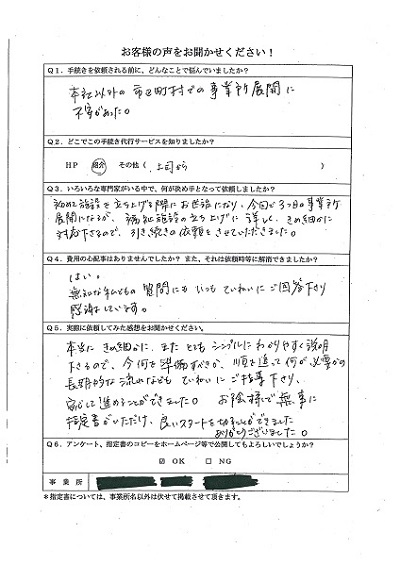 お客様の声をお聞かせください!
Q1.手続きを依頼される前に、どんなことで悩んでいましたか?
本社以外の市区町村での事業所展開に
不安があった。
Q2.どこでこの手続き代行サービスを知りましたか?
HP 紹介 その他( 上司から )
Q3.いろいろな専門家がいる中で、何が決め手となって依頼しましたか?
初めて施設を立ち上げる際にお世話になり、今回が3つ目の事業所
展開になるが、福祉施設の立ち上げに詳しく、きめ細かに
対応下さるので、引き続きの依頼をさせていただきました。
Q4.費用の心配事はありませんでしたか?また、それは依頼時等に解消できましたか?
はい。
無知な私どもの質問にもいつもていねいにご回答下さり
感謝しています。
Q5.実際に依頼してみた感想をお聞かせください。
本当にきめ細かに、またとてもシンプルにわかりやすく説明
下さるので、今何を準備すべきか、順を追って何が必要かの
長期的な流れなどもていねいにご指導下さり、
安心して進めることができました。お陰様で無事に
指定書がいただけ、良いスタートを切ることができました
ありがとうございました。
Q6.アンケート、指定書のコピーをホームページ等で公開してもよろしいでしょうか?
☑ OK □ NG
事業所
*指定書については、事業所名以外は伏せて掲載させて頂きます。